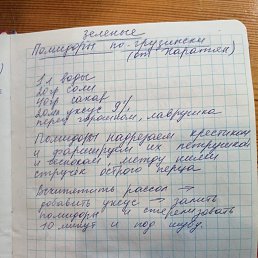 зеленые
Помидоры по-грузински
(от Наратян)
1 л воды
20 гр соли
40 гр сахар
20 мл уксус 9%
перец горошком, лаврушка
Помидоры нарезаем крестиком
и фаршируем их петрушкой
и чесноком, между ними
стручок острого перца
Вскипятить рассол →
добавить уксус → залить
помидоры и стерилизовать
10 минут и под шубу.